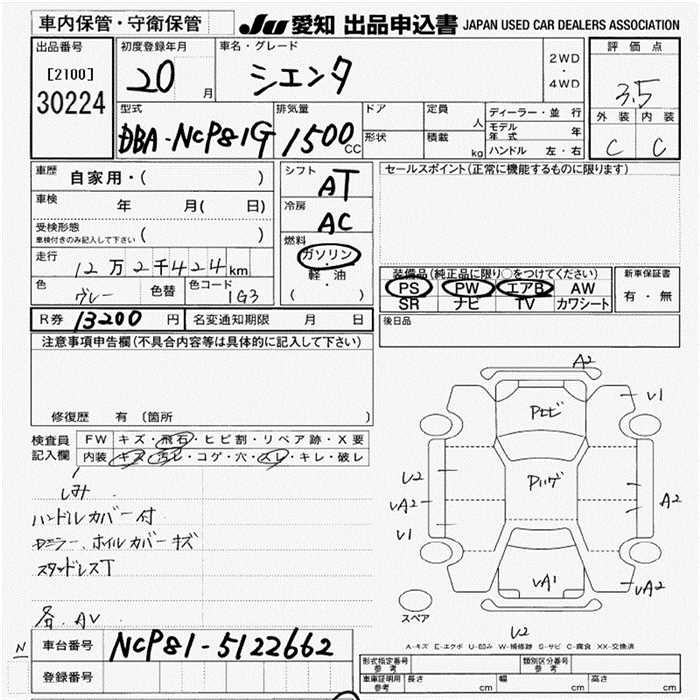 車内保管・守衛保管
JU 愛知 出品申込書 JAPAN USED CAR DEALERS ASSOCIATION
出品番号
[2100]
30224
初度登録年月
20 月
車名・グレード
シエンタ
2WD
・
4WD
評価点
3.5
外装 内装
C C
型式
DBA-NCP81G
排気量
1500 CC
ドア
形状
定員 人
積載 kg
ディーラー・並行
モデル年式 年
ハンドル 左・右
車歴 自家用・( )
車検 年 月( 日)
受検形態
車検付きのみ記入して下さい ( )
走行
12万2千424km
色 グレー 色替 色コード 1G3
シフト
AT
冷房
AC
燃料
ガソリン
・
軽油
・
( )
セールスポイント(正常に機能するものに限ります)
装備品(純正品に限り○をつけてください)
PS PW エアB AW
SR ナビ TV カワシート
新車保証書
有・無
後日品
R券 13200 円 名変通知期限 月 日
注意事項申告欄(不具合内容等は具体的に記入して下さい)
修復歴 有 〔箇所 〕
検査員
記入欄
FW キズ・飛石・ヒビ割・リペア跡・X要
内装 キズ・汚レ・コゲ・穴・スレ・キレ・破レ
シミ
ハンドルカバー付
ホイルカバーキズ
スタッドレスT
各AV
A2
U1
Pエビ
U2
UA2
U1
A2
UA1
UA2
U2
スペア
A-キズ E-エクボ U-凹み W-補修跡 S-サビ C-腐食 XX-交換済
N
車台番号 NCP81-5122662
登録番号
形式指定番号
参考
類別区分番号
参考
車庫証明用
参考
長さ cm 幅 cm 高さ cm